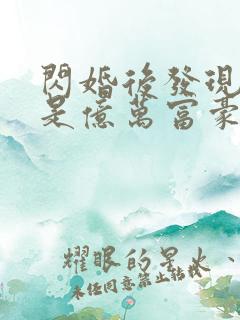 閃婚後發現
是億萬富豪
耀眼的星火、
未經同意禁止轉載